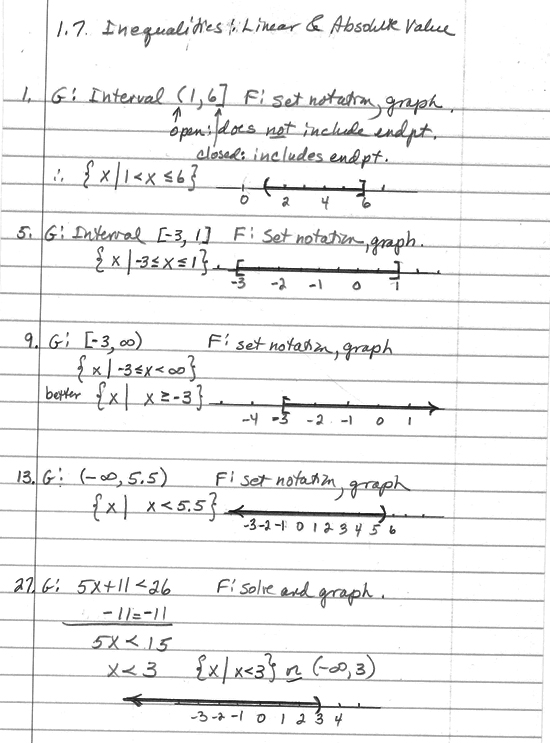 1.7. Inequalities: Linear & Absolute Value
1. G: Interval (1,6] F: set notation, graph.
open: does not include endpt.
closed: includes endpt.
∴ {x | 1<x≤6}
0 2 4 6
5. G: Interval [-3, 1] F: Set notation, graph.
{x | -3≤x≤1}
-3 -2 -1 0 1
9. G: [-3, ∞) F: set notation, graph
{x | -3≤x<∞}
better {x | x≥-3}
-4 -3 -2 -1 0 1
13. G: (-∞, 5.5) F: set notation, graph
{x | x<5.5}
-3 -2 -1 0 1 2 3 4 5 6
27. G: 5x+11<26 F: solve and graph.
-11=-11
5x<15
x<3 {x | x<3} or (-∞, 3)
-3 -2 -1 0 1 2 3 4